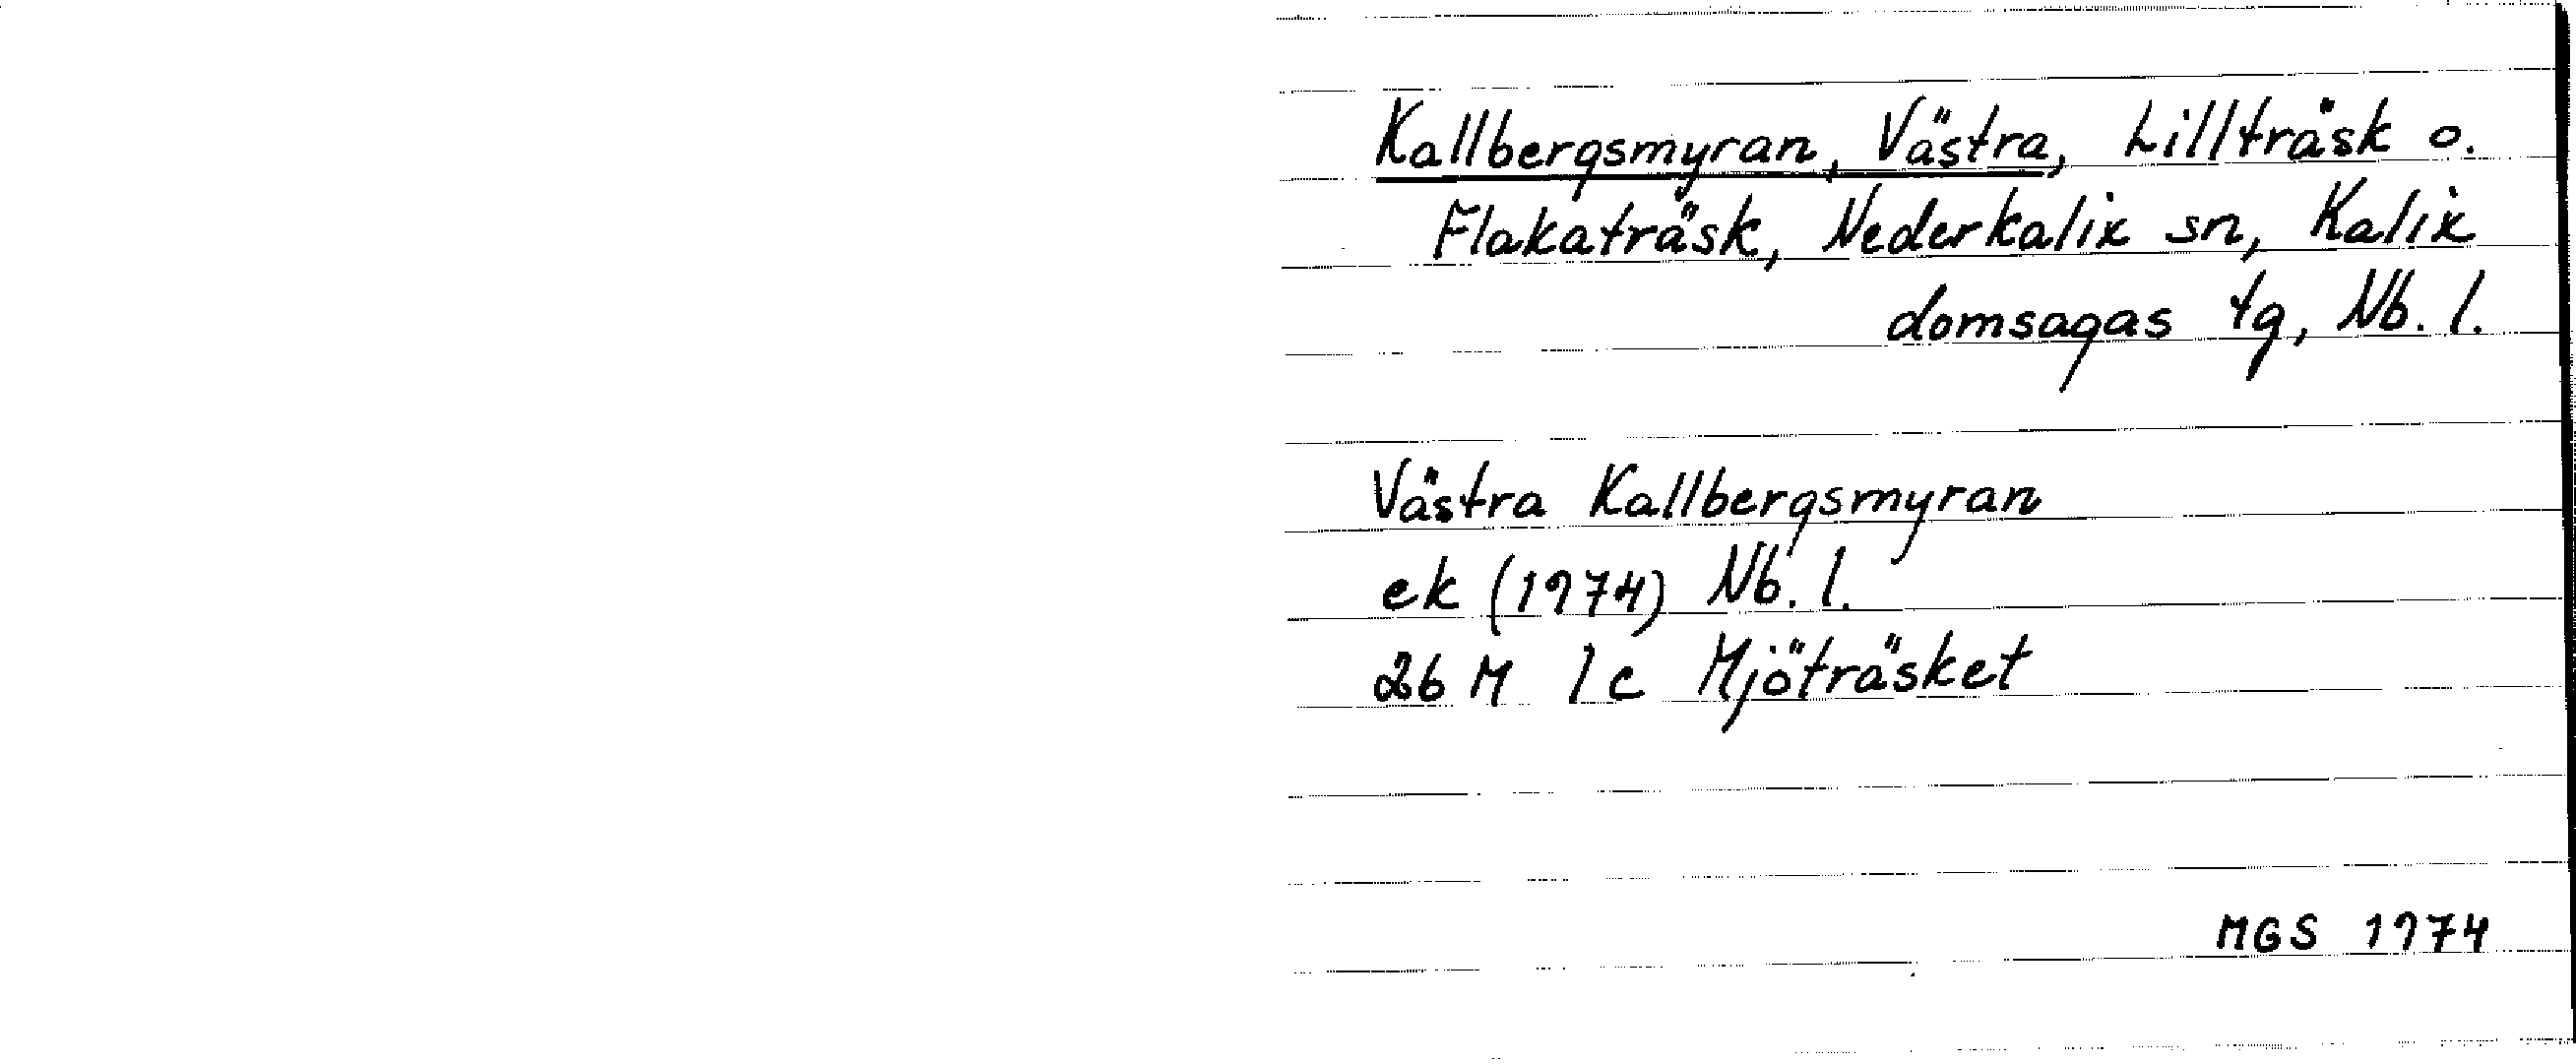 Kallbergsmyran, Västra, Lillträsk o.
Flakaträsk, Nederkalix sn, Kalix
domsagas tg, Nb. l.
Västra Kallbergsmyran
ek (1974) Nb. l.
26 M 1c Mjöträsket
MGS 1974